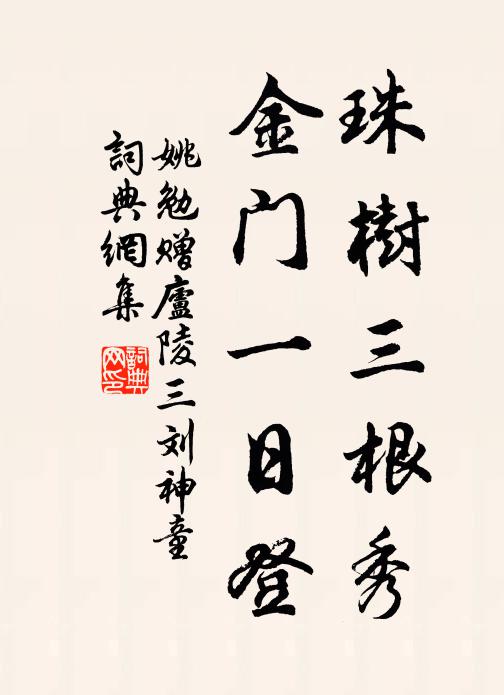 珠樹三根秀
金门一日登
姚勉赠廬陵三刘神童
詞典網集
詞典网印